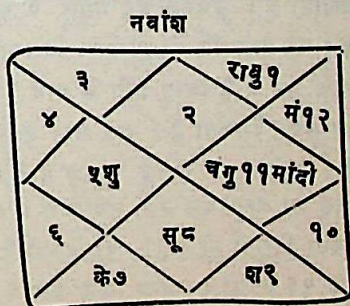 नवांश
३
राबु१
४
२
मं१२
५शु
चगु११मांदी
६
सू८
१०
के७
श९